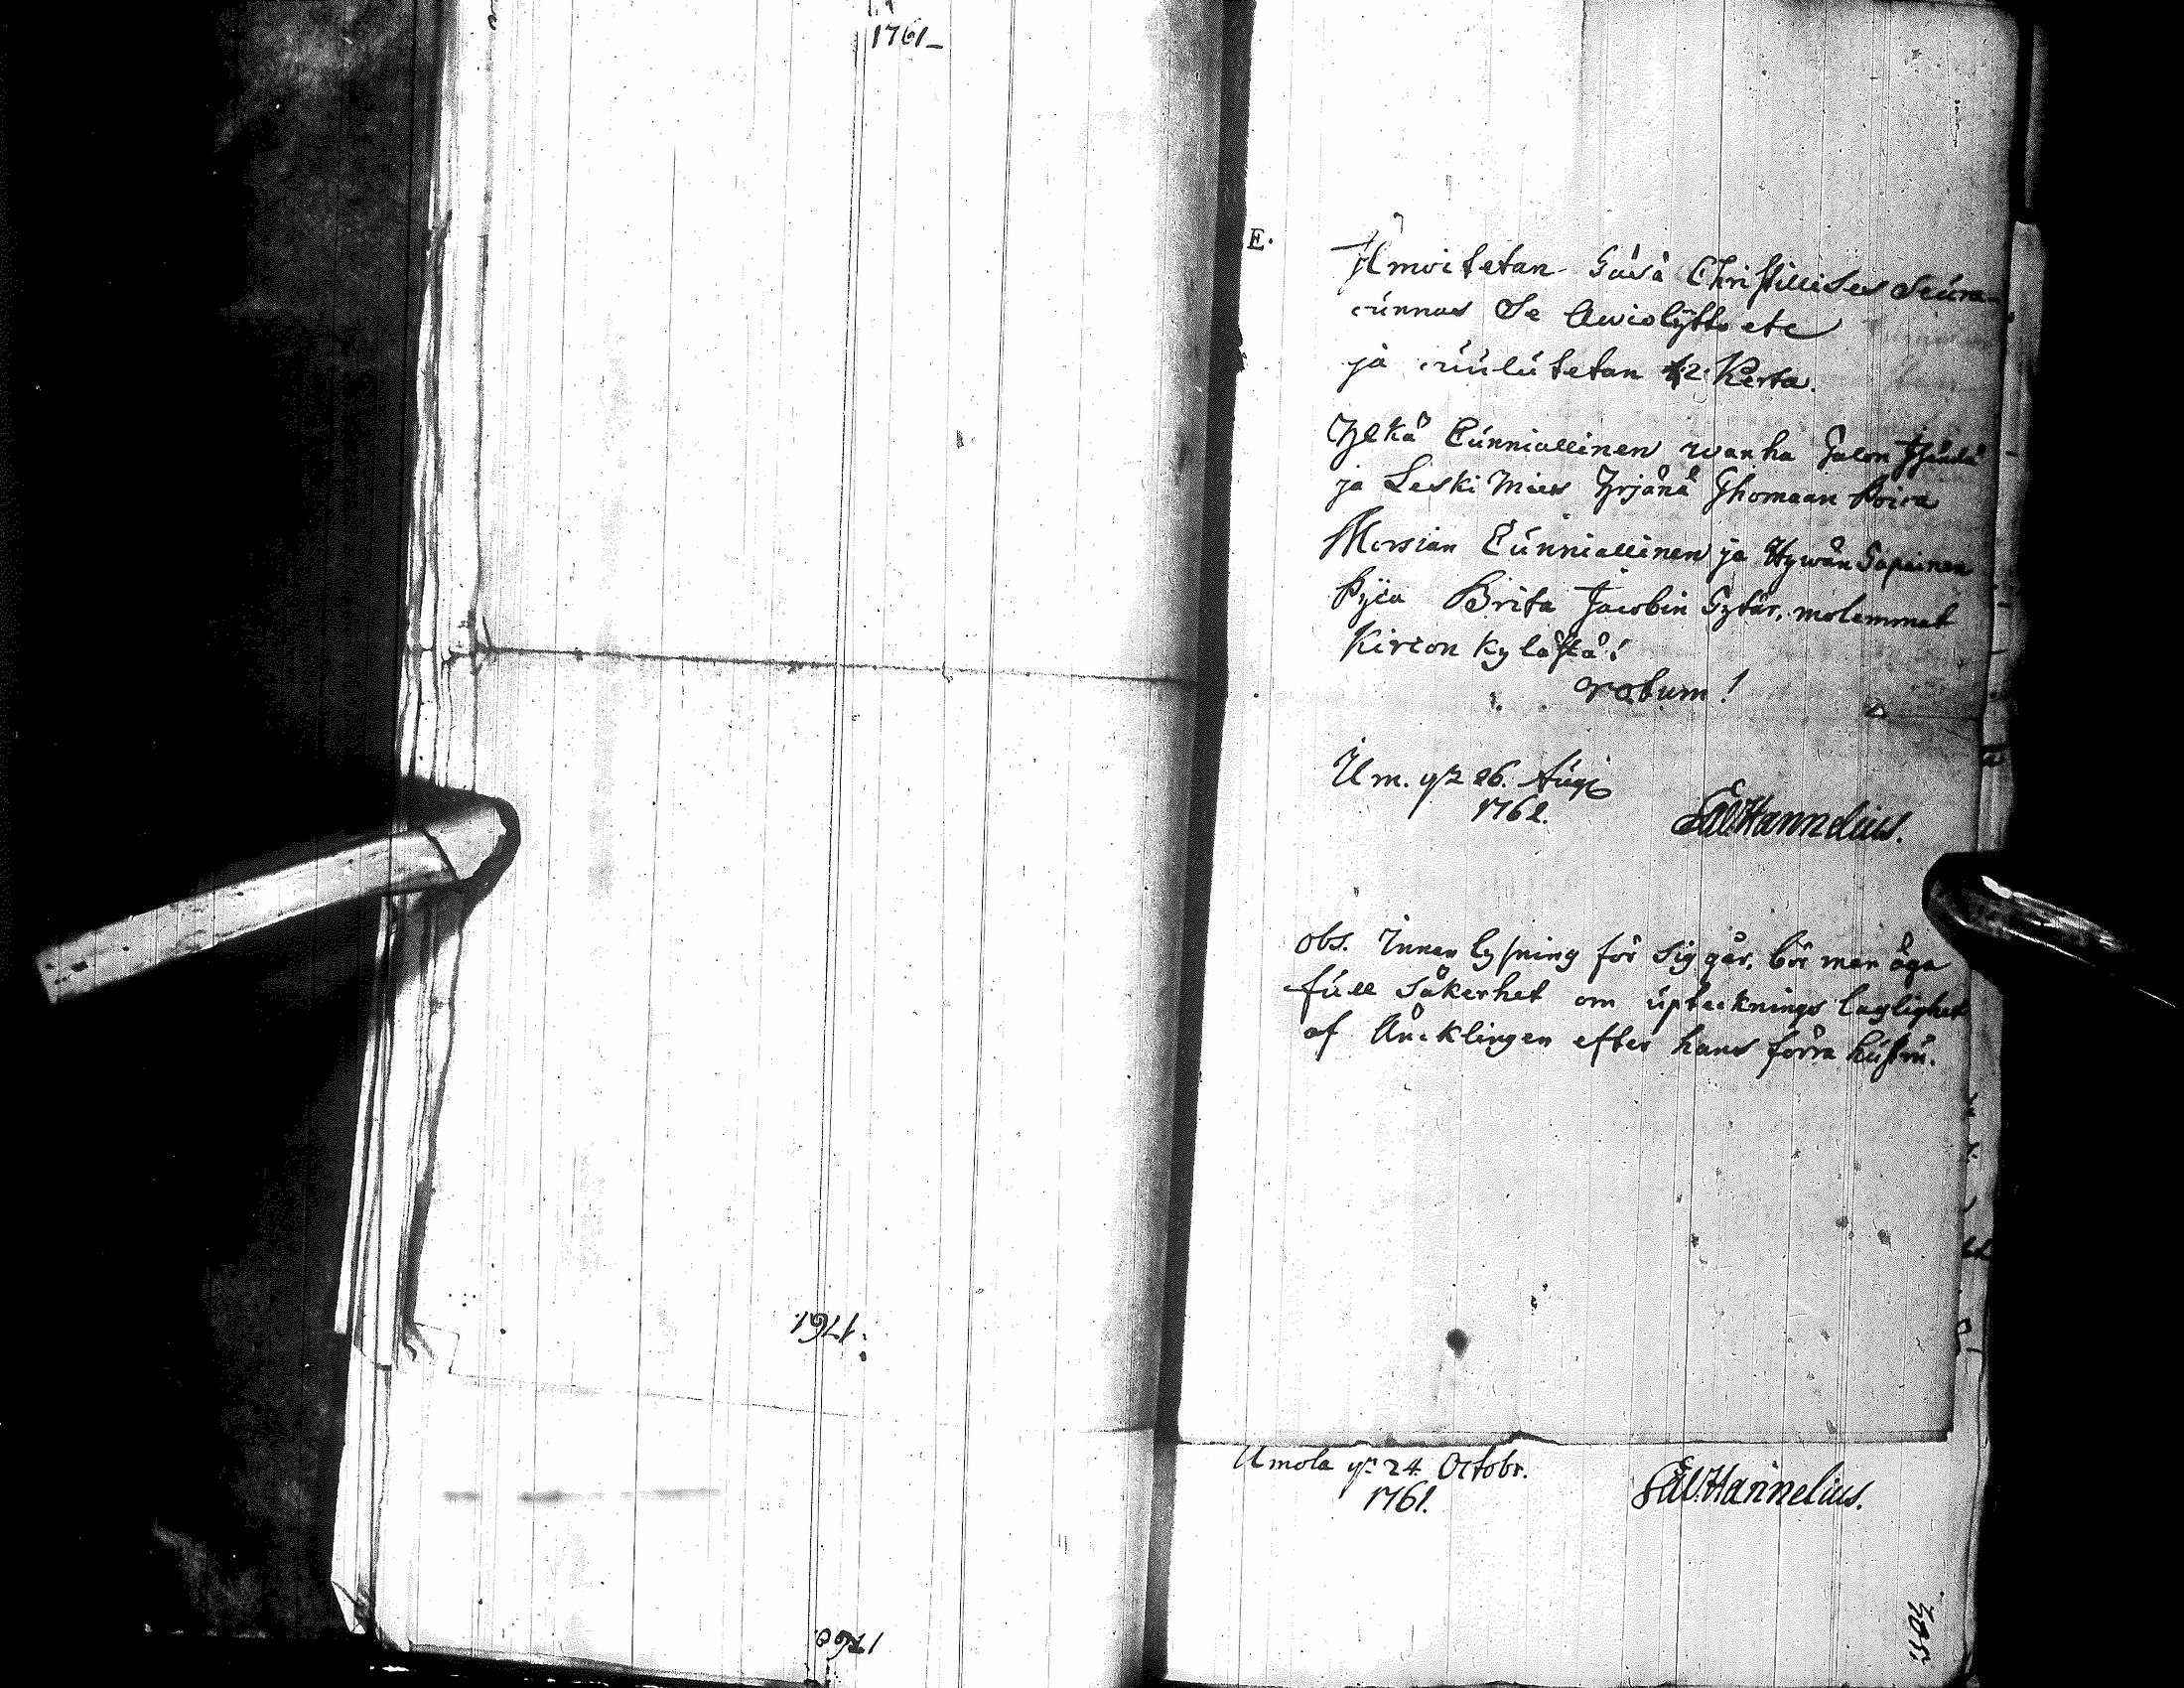 1761_
1761.
1760.
E.
Ilmoitetan Täsä Christillises Seura-
cunnas Se Awiolijtto etc
ja cuulutetan 2 Kerta.
Yljkä Cunniallinen wanha Talon Isändä
ja Leski Mies Yrjänä Thomaan Poica
Morsian Cunniallinen ja Hywän Tapainen
Pijca Brita Jacobin Tytär, molemmat
Kircon Kylästä!
votum!
Ulm. 26. Aug
1762.
Hannelius.
Obs. Innan lysning för sig går, bör man äga
full säkerhet om upteknings laglighet
af Äncklingen efter hans förra hustru.
Umola 24. Octobr.
1761.
Hannelius.